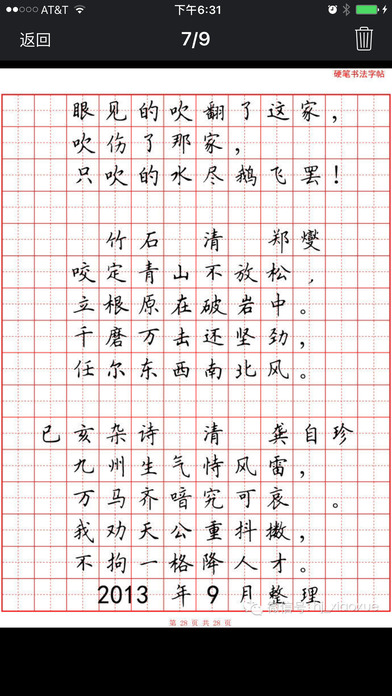 AT&T 下午6:31
返回 7/9
硬笔书法字帖
眼见的吹翻了这家，
吹伤了那家，
只吹的水尽鹅飞罢！
竹石 清 郑燮
咬定青山不放松，
立根原在破岩中。
千磨万击还坚劲，
任尔东西南北风。
已亥杂诗 清 龚自珍
九州生气恃风雷，
万马齐喑究可哀 。
我劝天公重抖擞，
不拘一格降人才。
2013 年 9 月整理
第 28 页 共 28 页